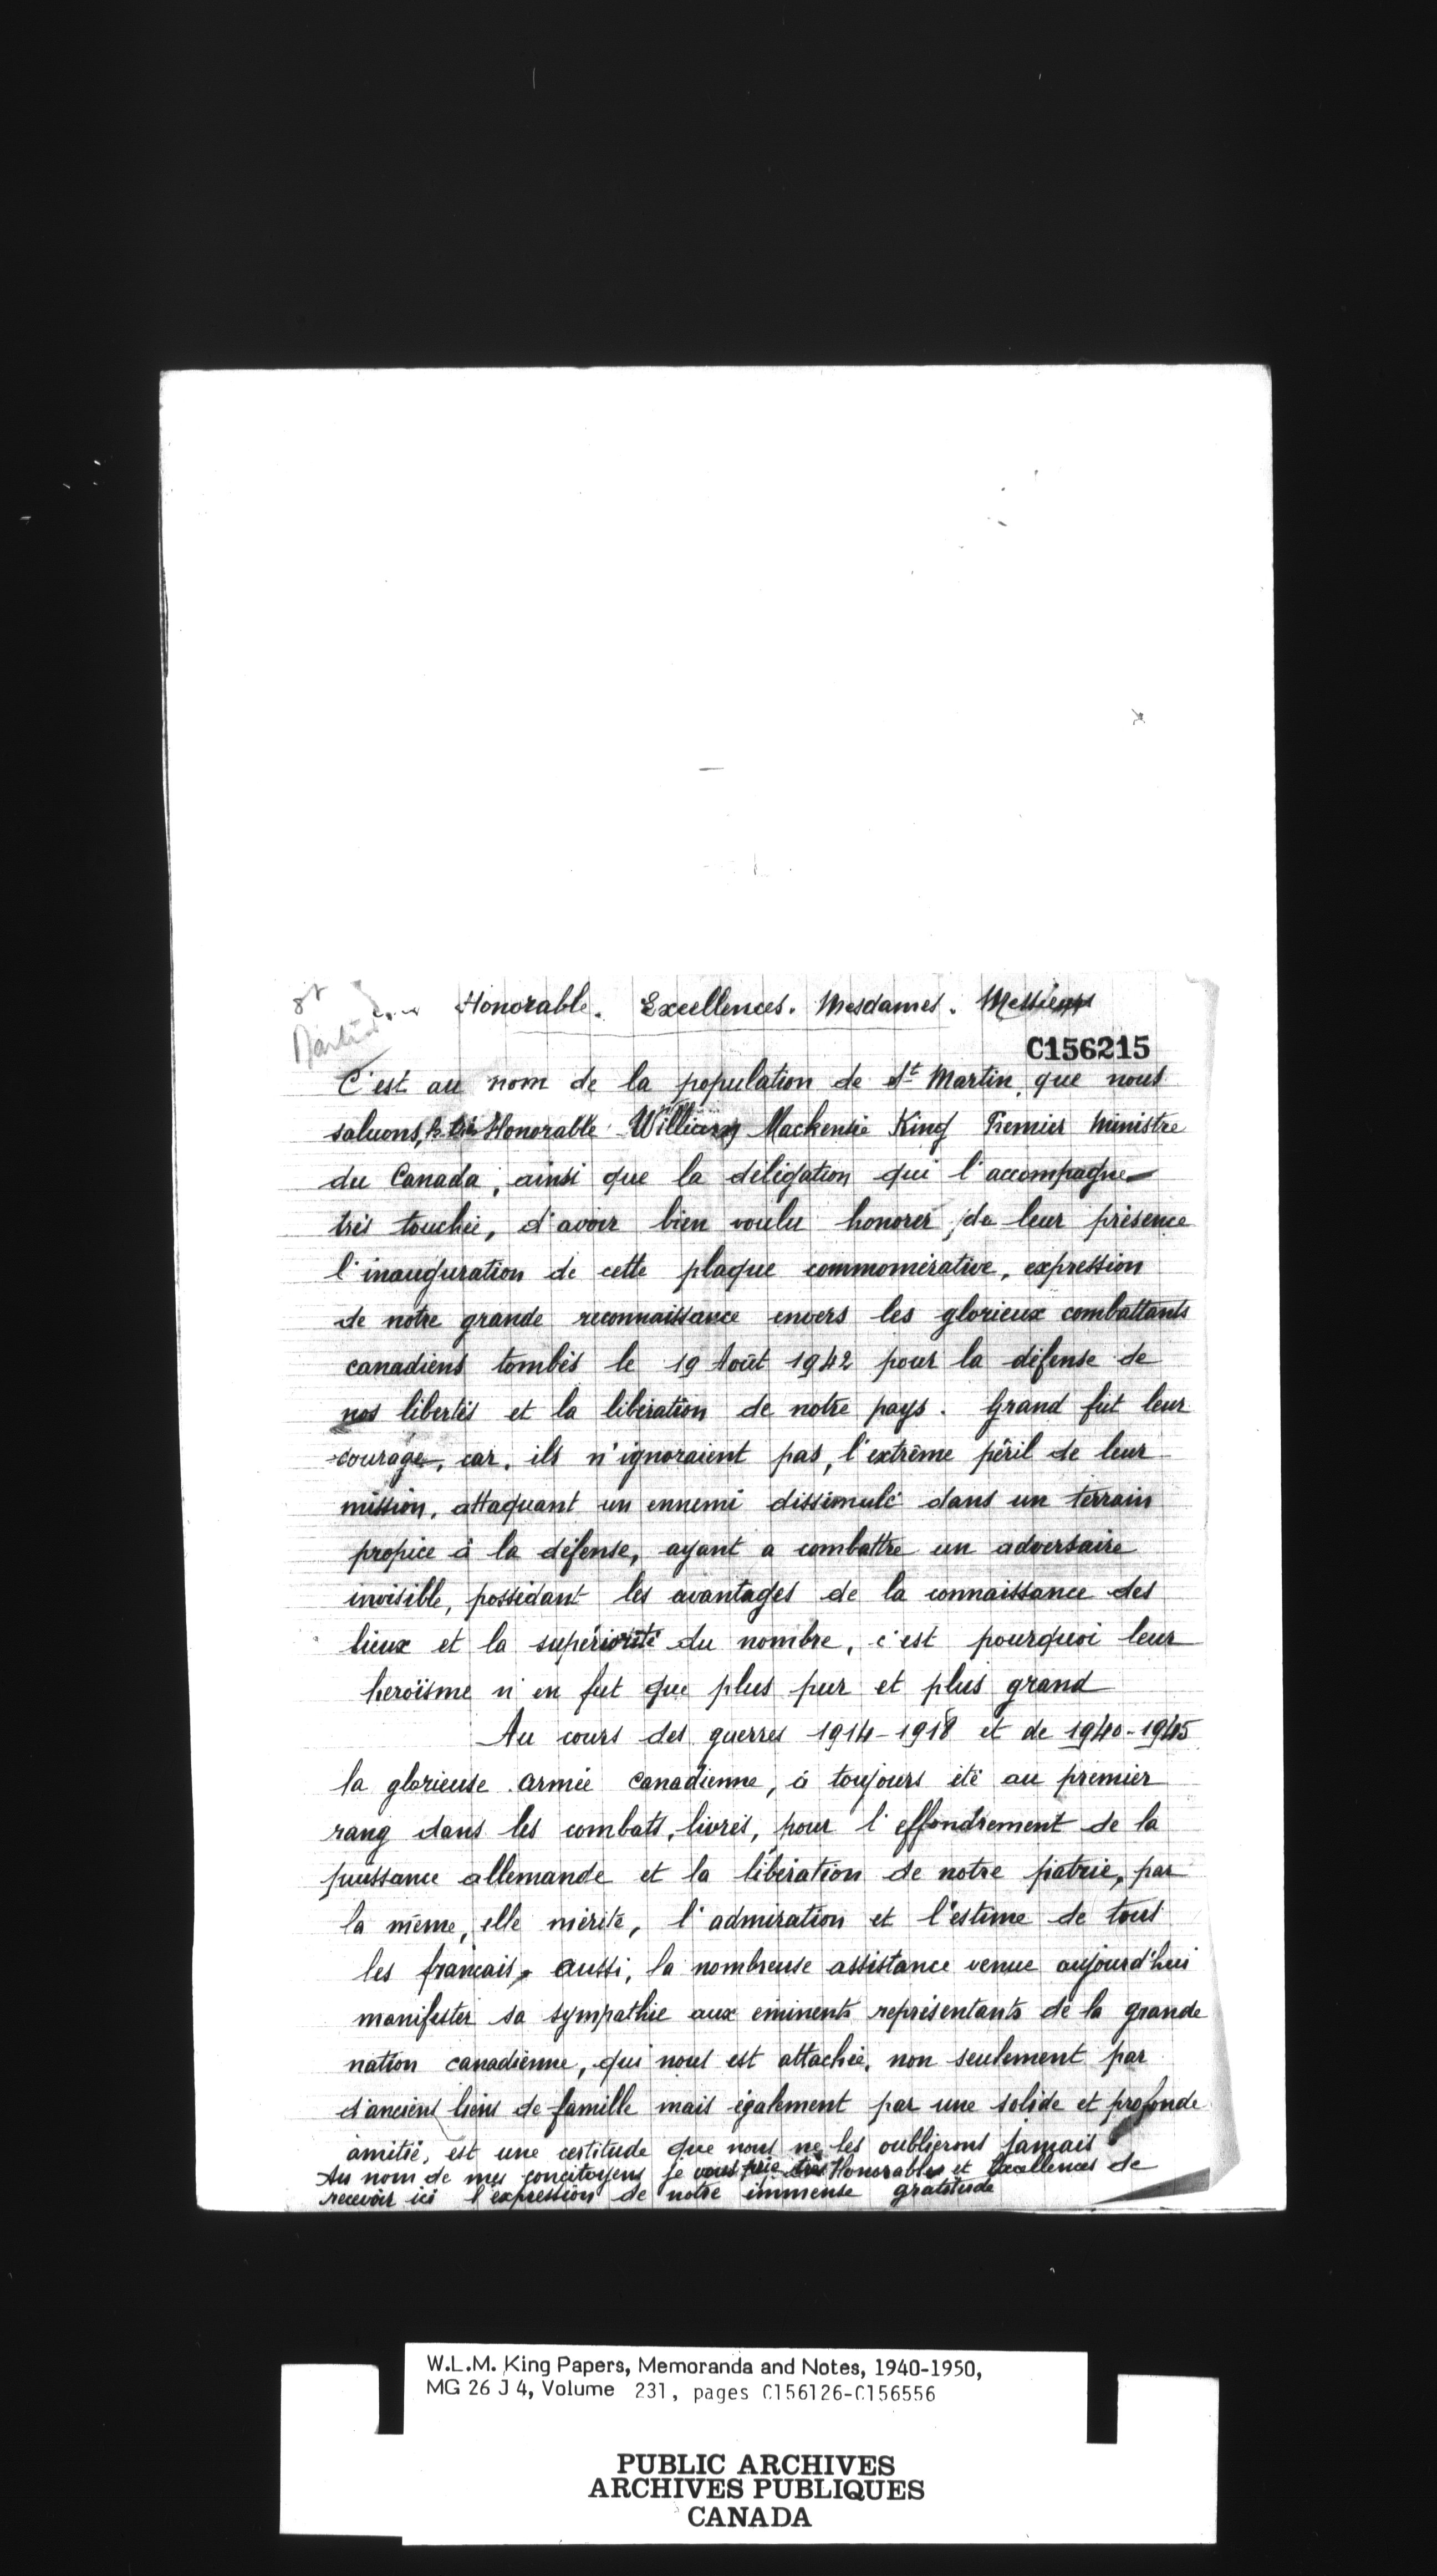 St
Martin
Honorable. Excellences. Mesdames. Messieurs
C156215
C'est au nom de la population de St Martin, que nous
saluons, le très Honorable William Mackensie King Premier Ministre
du Canada, ainsi que la délégation qui l'accompagne
très touchée, d'avoir bien voulu honorer, de leur présence
l'inauguration de cette plaque commomérative, expression
de notre grande reconnaissance envers les glorieux combattants
canadiens tombés le 19 Août 1942 pour la défense de
nos libertés et la libération de notre pays. Grand fut leur
courage, car, ils n'ignoraient pas, l'extrême péril de leur
mission, attaquant un ennemi dissimulé dans un terrain
propice à la défense, ayant a combattre un adversaire
invisible, possédant les avantages de la connaissance des
lieux et la supériorité du nombre, c'est pourquoi leur
heroïsme n'en fut que plus pur et plus grand
Au cours des guerres 1914-1918 et de 1940-1945
la glorieuse armée Canadienne, à toujours été au premier
rang dans les combats, livrés, pour l'effondrement de la
puissance allemande et la libération de notre patrie, par
la même, elle mérite, l'admiration et l'estime de tous
les français, aussi, la nombreuse assistance venue aujourd'hui
manifester sa sympathie aux eminents représentants de la grande
nation canadienne, qui nous est attachée, non seulement par
d'anciens liens de famille mais également par une solide et profonde
amitié, est une certitude que nous ne les oublierons jamais
Au nom de mes concitoyens je vous prie très Honorables et Excellences de
recevoir ici l'expression de notre immense gratitude
W.L.M. King Papers, Memoranda and Notes, 1940-1950,
MG 26 J 4, Volume 231, pages C156126-C156556
PUBLIC ARCHIVES
ARCHIVES PUBLIQUES
CANADA